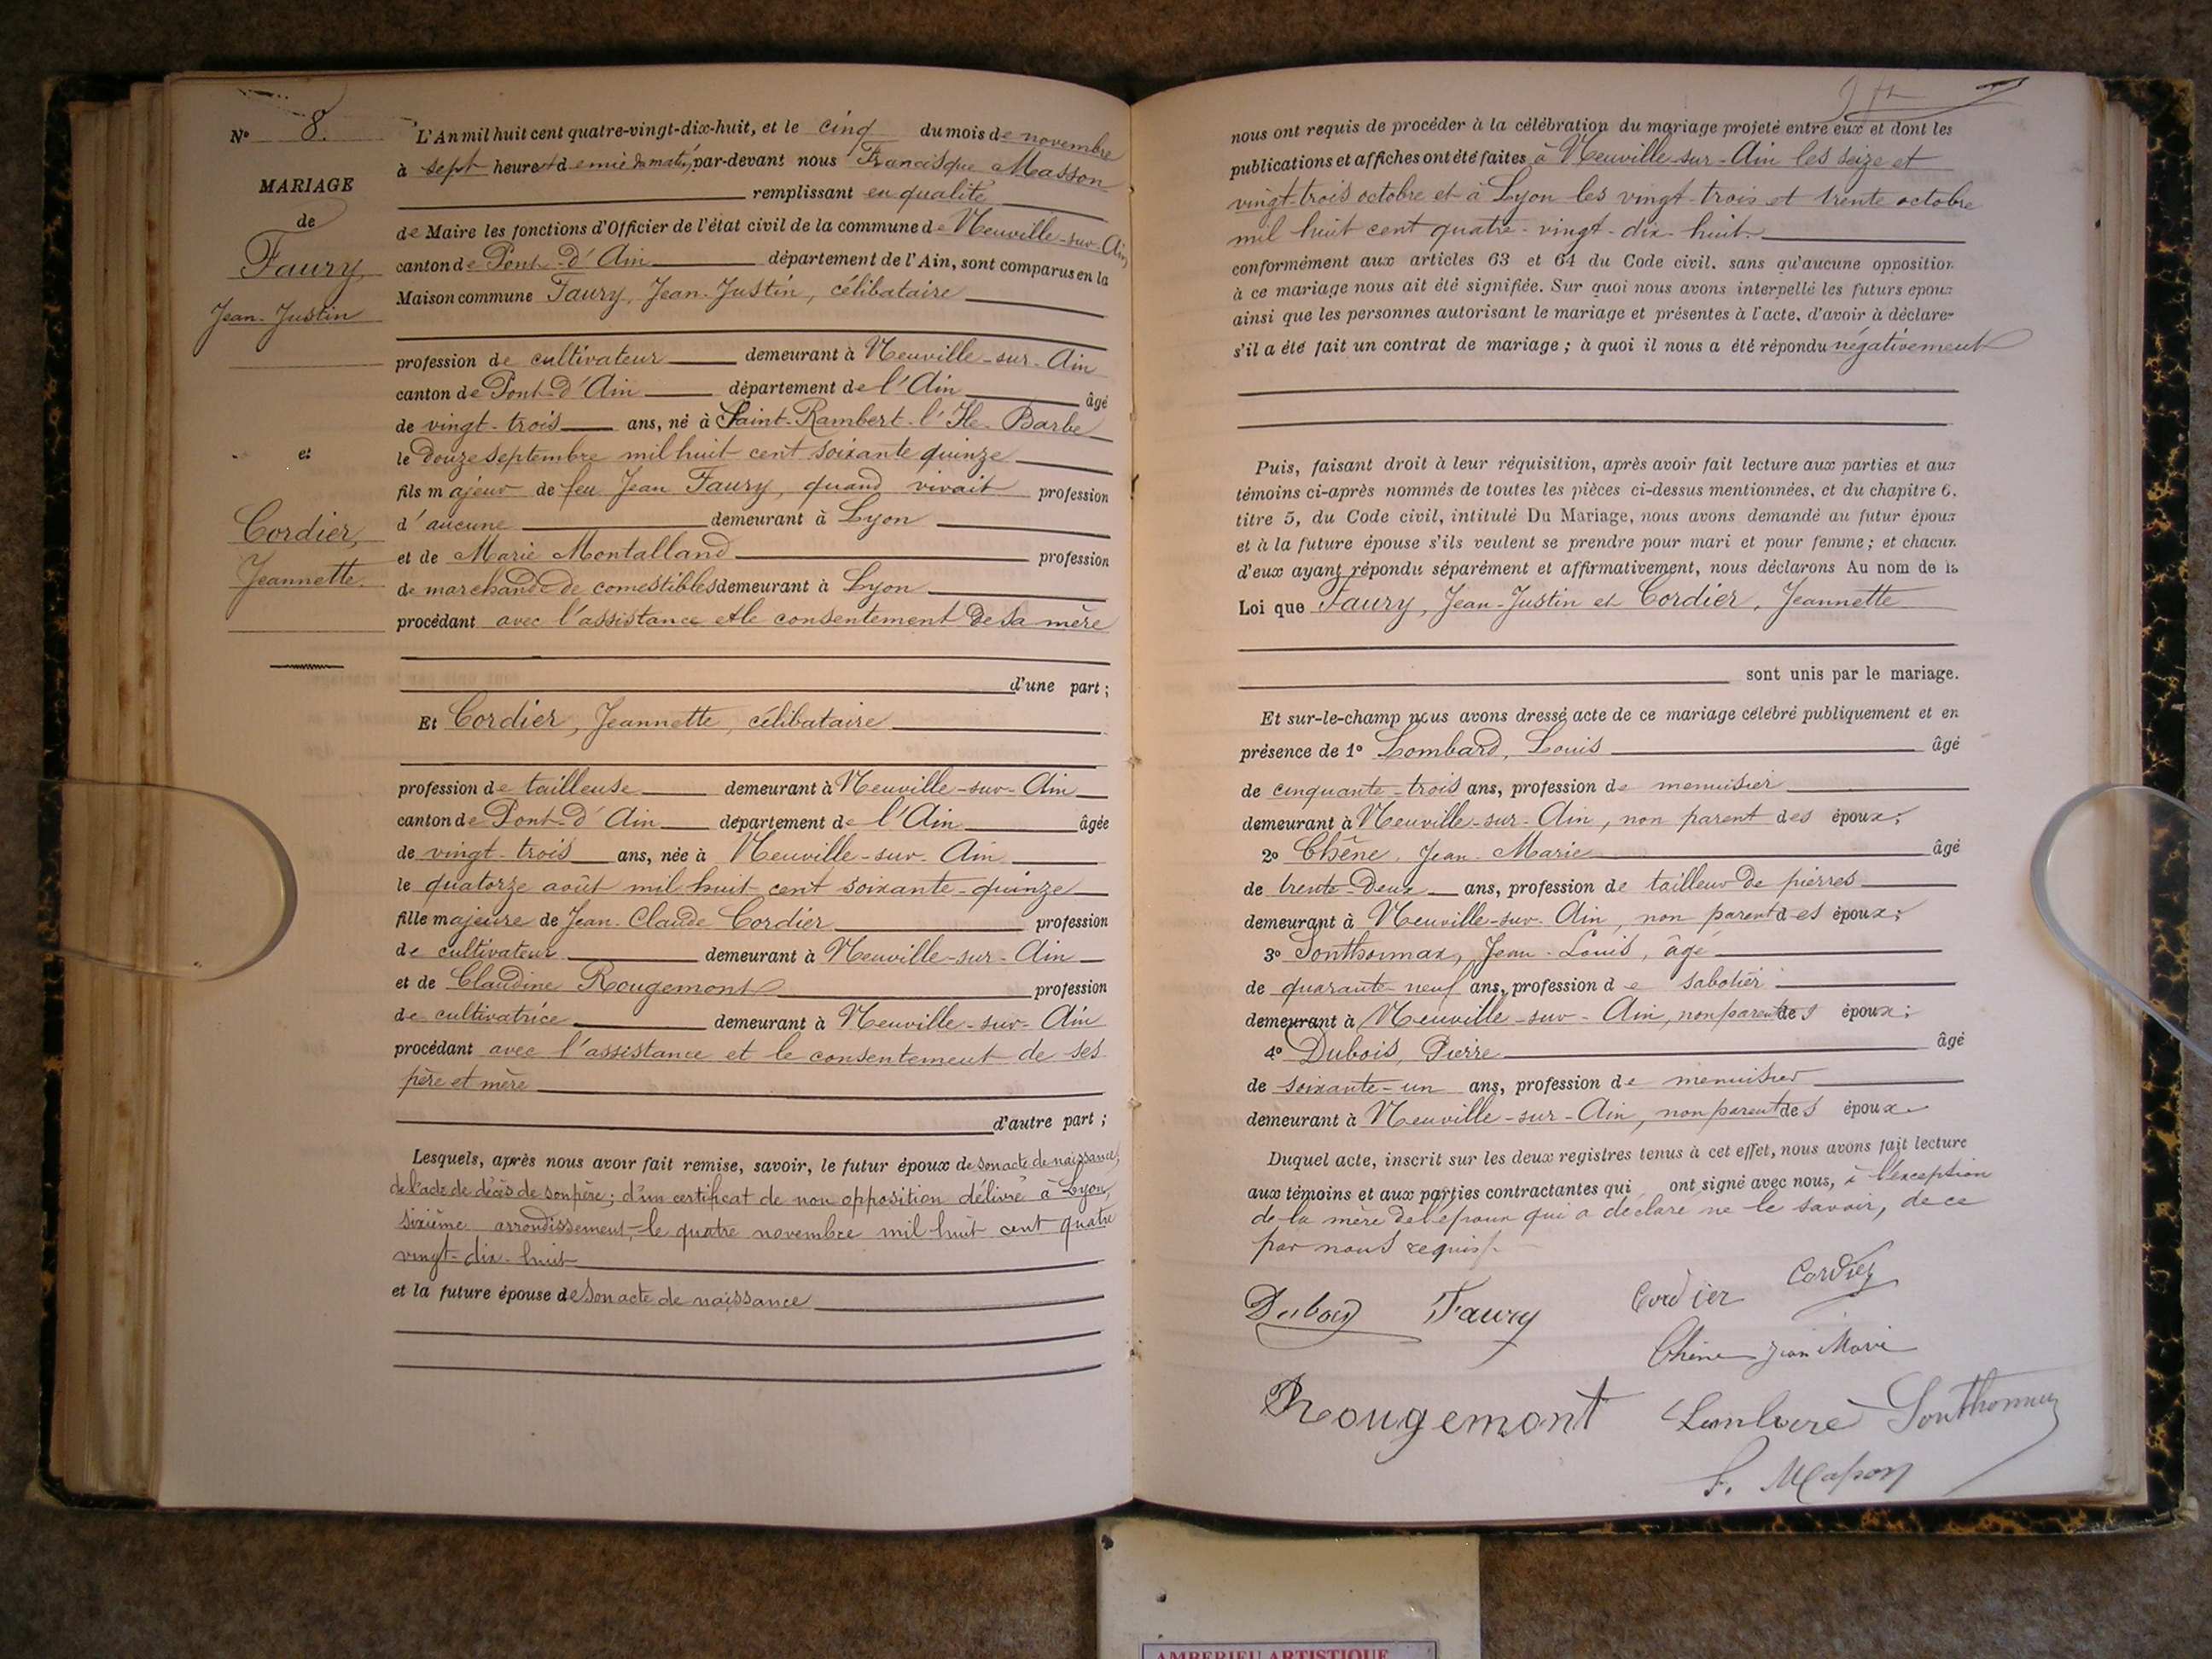 N° 8.
MARIAGE
de
Faury,
Jean-Justin
et
Cordier,
Jeannette.
L'An mil huit cent quatre-vingt-dix-huit, et le cinq du mois de novembre
à sept heures et demie du matin, par-devant nous Francisque Masson
remplissant en qualité
de Maire les fonctions d'Officier de l'état civil de la commune de Neuville-sur-Ain,
canton de Pont-d'Ain département de l'Ain, sont comparus en la
Maison commune Faury, Jean-Justin, célibataire
profession de cultivateur demeurant à Neuville-sur-Ain
canton de Pont-d'Ain département de l'Ain âgé
de vingt-trois ans, né à Saint-Rambert-l'Ile-Barbe
le douze septembre mil huit cent soixante quinze
fils majeur de feu Jean Faury, quand vivait profession
d'aucune demeurant à Lyon
et de Marie Montalland profession
de marchande de comestibles demeurant à Lyon
procédant avec l'assistance et le consentement de sa mère
d'une part;
Et Cordier, Jeannette, célibataire
profession de tailleuse demeurant à Neuville-sur-Ain
canton de Pont-d'Ain département de l'Ain âgée
de vingt-trois ans, née à Neuville-sur-Ain
le quatorze août mil huit cent soixante-quinze
fille majeure de Jean-Claude Cordier profession
de cultivateur demeurant à Neuville-sur-Ain
et de Claudine Rougemont profession
de cultivatrice demeurant à Neuville-sur-Ain
procédant avec l'assistance et le consentement de ses
père et mère
d'autre part;
Lesquels, après nous avoir fait remise, savoir, le futur époux de son acte de naissance,
de l'acte de décès de son père; d'un certificat de non opposition délivré à Lyon,
sixième arrondissement, le quatre novembre mil huit cent quatre
vingt-dix-huit
et la future épouse de son acte de naissance
nous ont requis de procéder à la célébration du mariage projeté entre eux et dont les
publications et affiches ont été faites à Neuville-sur-Ain les seize et
vingt-trois octobre et à Lyon les vingt-trois et trente octobre
mil huit cent quatre-vingt-dix-huit.
conformément aux articles 63 et 64 du Code civil. sans qu'aucune opposition
à ce mariage nous ait été signifiée. Sur quoi nous avons interpellé les futurs époux
ainsi que les personnes autorisant le mariage et présentes à l'acte, d'avoir à déclarer
s'il a été fait un contrat de mariage; à quoi il nous a été répondu négativement
Puis, faisant droit à leur réquisition, après avoir fait lecture aux parties et aux
témoins ci-après nommés de toutes les pièces ci-dessus mentionnées, et du chapitre 6,
titre 5, du Code civil, intitulé Du Mariage, nous avons demandé au futur époux
et à la future épouse s'ils veulent se prendre pour mari et pour femme; et chacun
d'eux ayant répondu séparément et affirmativement, nous déclarons Au nom de la
Loi que Faury, Jean-Justin et Cordier, Jeannette
sont unis par le mariage.
Et sur-le-champ nous avons dressé acte de ce mariage célébré publiquement et en
présence de 1° Lombard, Louis âgé
de cinquante-trois ans, profession de menuisier
demeurant à Neuville-sur-Ain, non parent des époux;
2° Chêne, Jean-Marie âgé
de trente-deux ans, profession de tailleur de pierres
demeurant à Neuville-sur-Ain, non parent des époux;
3° Sonthonnax, Jean-Louis, âgé
de quarante-neuf ans, profession de sabotier
demeurant à Neuville-sur-Ain, non parent des époux;
4° Dubois, Pierre âgé
de soixante-un ans, profession de menuisier
demeurant à Neuville-sur-Ain, non parent des époux.
Duquel acte, inscrit sur les deux registres tenus à cet effet, nous avons fait lecture
aux témoins et aux parties contractantes qui ont signé avec nous, à l'exception
de la mère de l'époux qui a déclaré ne le savoir, de ce
par nous requis.
Dubois Faury Cordier Cordier
Chêne Jean Marie
Rougemont Sonthonnax
F. Masson
AMBERIEU ARTISTIQUE